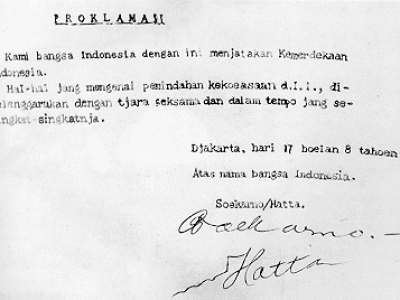 PROKLAMASI
Kami bangsa Indonesia dengan ini menjatakan Kemerdekaan
ndonesia.
Hal-hal jang mengenai pemindahan kekoeasaan d.l.l., di-
elenggarakan dengan tjara seksama dan dalam tempo jang se-
ingkat-singkatnja.
Djakarta, hari 17 boelan 8 tahoen
Atas nama bangsa Indonesia.
Soekarno/Hatta.
Soekarno.-
Hatta